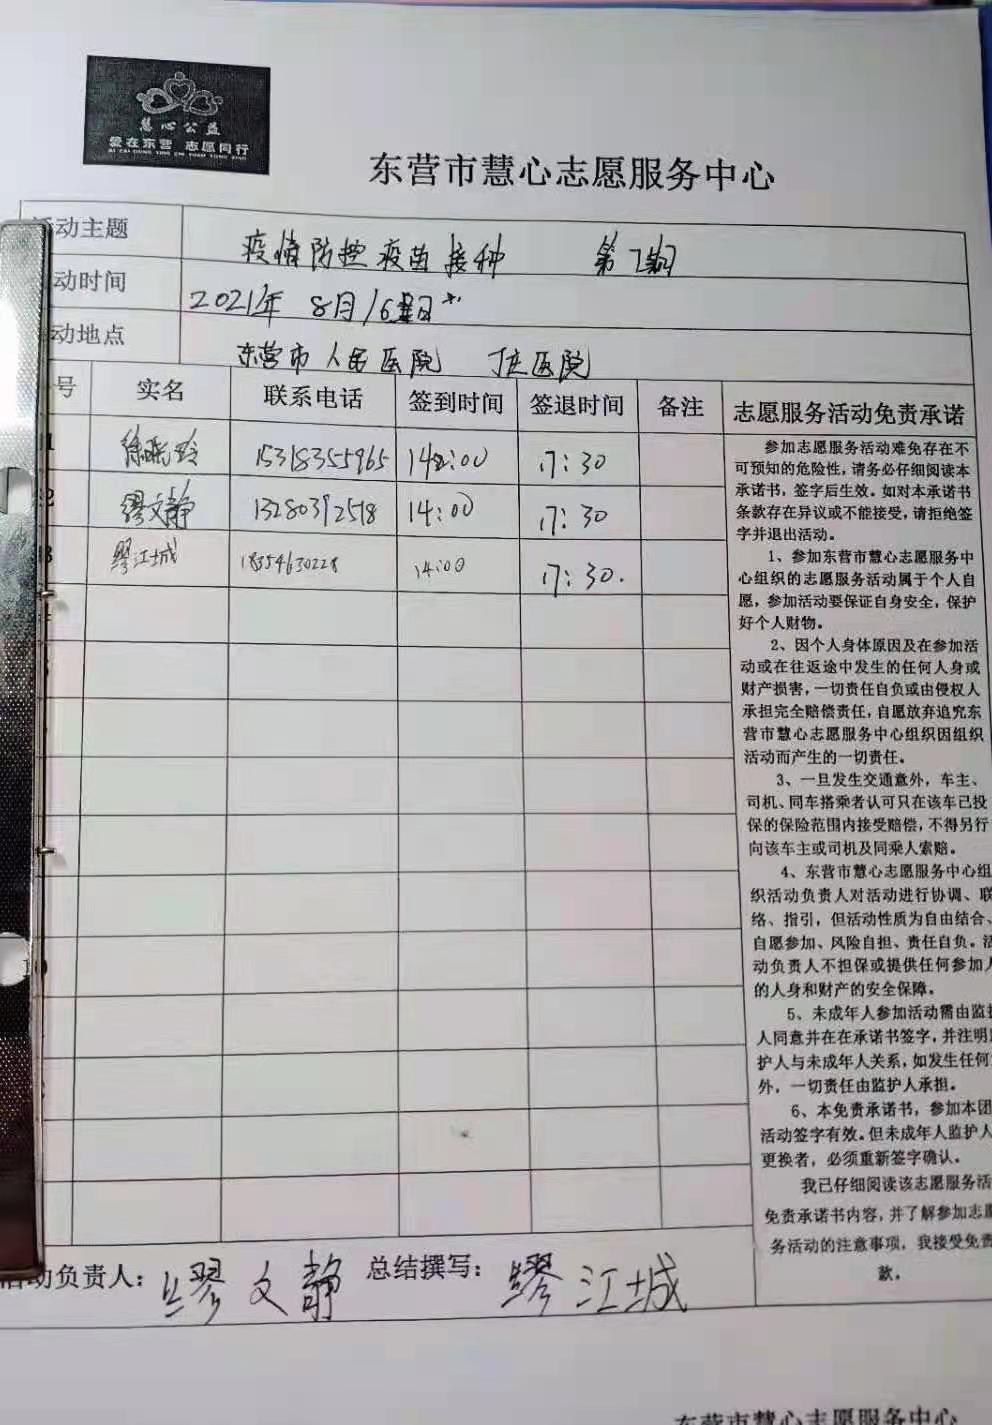 慧心公益
爱在东营 志愿同行
AI ZAI DONG YING ZHI YUAN TONG XING
东营市慧心志愿服务中心
活动主题 疫情防控疫苗接种 第 期
动时间 2021年 8月16日
动地点 东营市人民医院 医院
号 实名 联系电话 签到时间 签退时间 备注 志愿服务活动免责承诺
1 徐晓玲 15318355965 14:00 17:30
2 缪文静 13280392518 14:00 17:30
3 缪江城 18354630228 14:00 17:30.
参加志愿服务活动难免存在不
可预知的危险性,请务必仔细阅读本
承诺书,签字后生效。如对本承诺书
条款存在异议或不能接受,请拒绝签
字并退出活动。
1、参加东营市慧心志愿服务中
心组织的志愿服务活动属于个人自
愿,参加活动要保证自身安全,保护
好个人财物。
2、因个人身体原因及在参加活
动或在往返途中发生的任何人身或
财产损害,一切责任自负或由侵权人
承担完全赔偿责任,自愿放弃追究东
营市慧心志愿服务中心组织因组织
活动而产生的一切责任。
3、一旦发生交通意外,车主、
司机、同车搭乘者认可只在该车已投
保的保险范围内接受赔偿,不得另行
向该车主或司机及同乘人索赔。
4、东营市慧心志愿服务中心组
织活动负责人对活动进行协调、联
络、指引,但活动性质为自由结合、
自愿参加、风险自担、责任自负。活
动负责人不担保或提供任何参加人
的人身和财产的安全保障。
5、未成年人参加活动需由监护
人同意并在在承诺书签字,并注明
护人与未成年人关系,如发生任何
外,一切责任由监护人承担。
6、本免责承诺书,参加本团
活动签字有效。但未成年人监护人
更换者,必须重新签字确认。
我已仔细阅读该志愿服务活
免责承诺书内容,并了解参加志愿
务活动的注意事项,我接受免责
款。
活动负责人: 缪文静 总结撰写: 缪江城
东营市慧心志愿服务中心